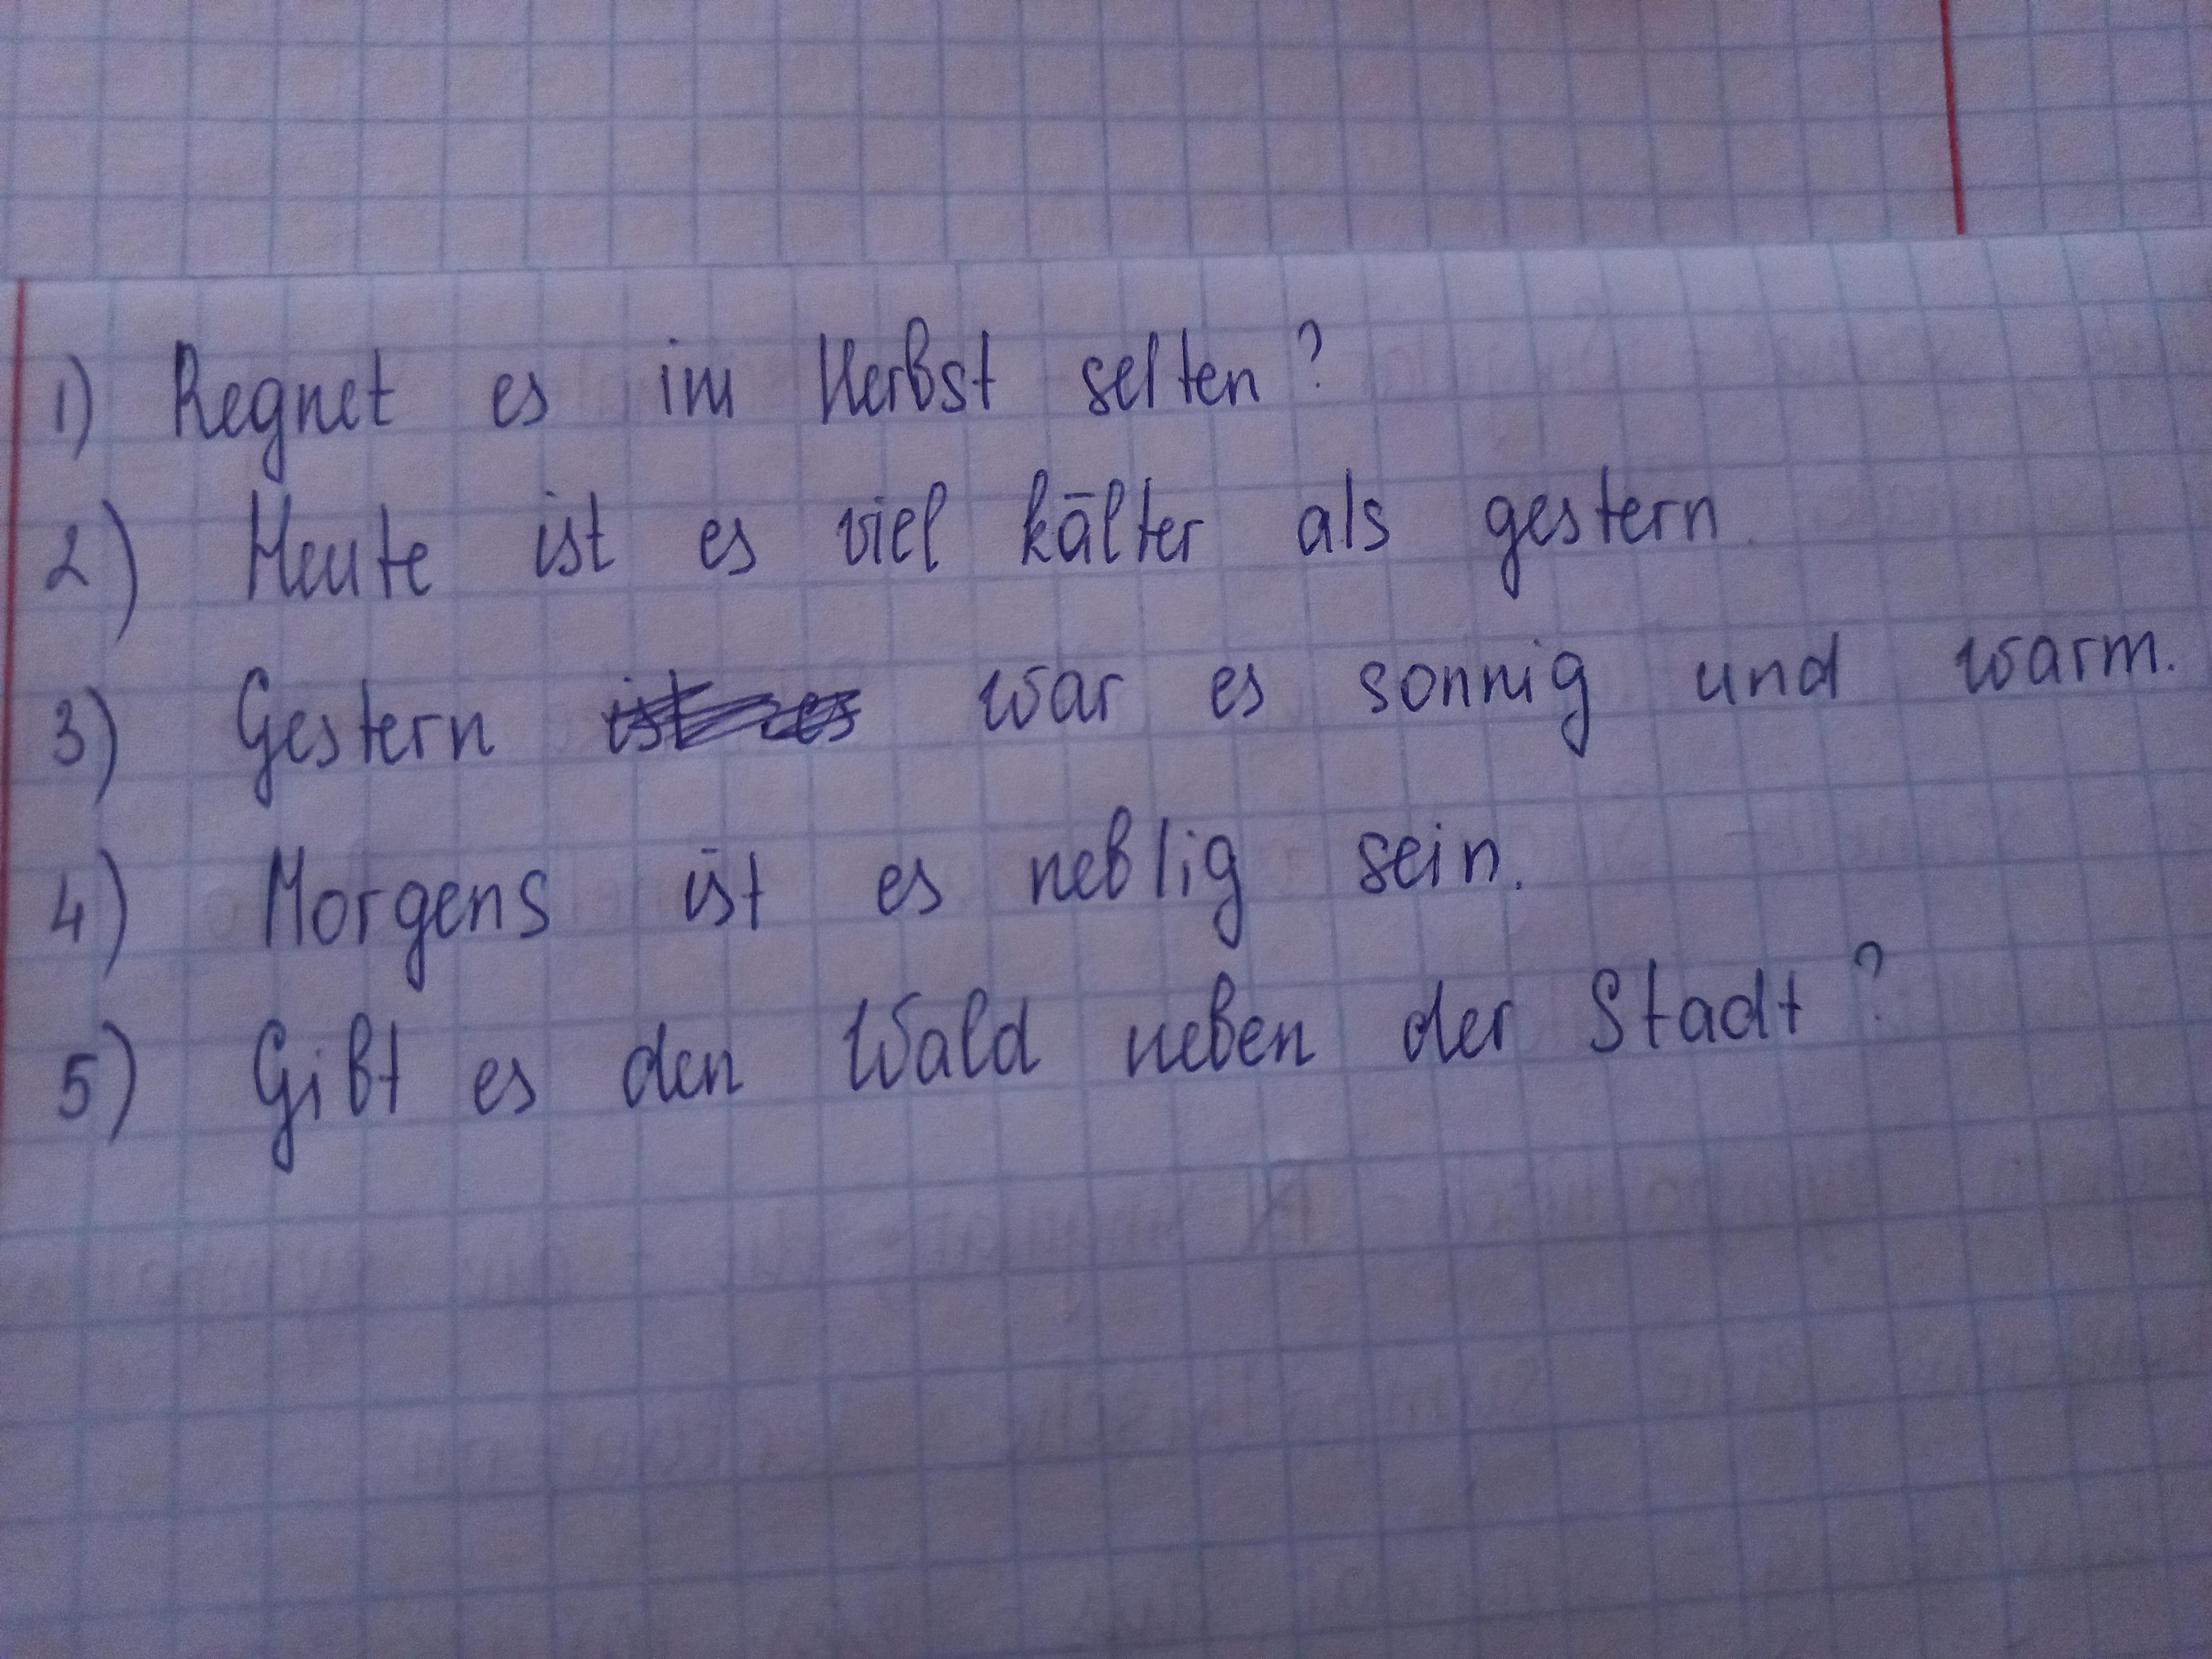 1) Regnet es im Herbst selten?
2) Heute ist es viel kälter als gestern.
3) Gestern ist es war es sonnig und warm.
4) Morgens ist es neblig sein.
5) Gibt es den Wald neben der Stadt?